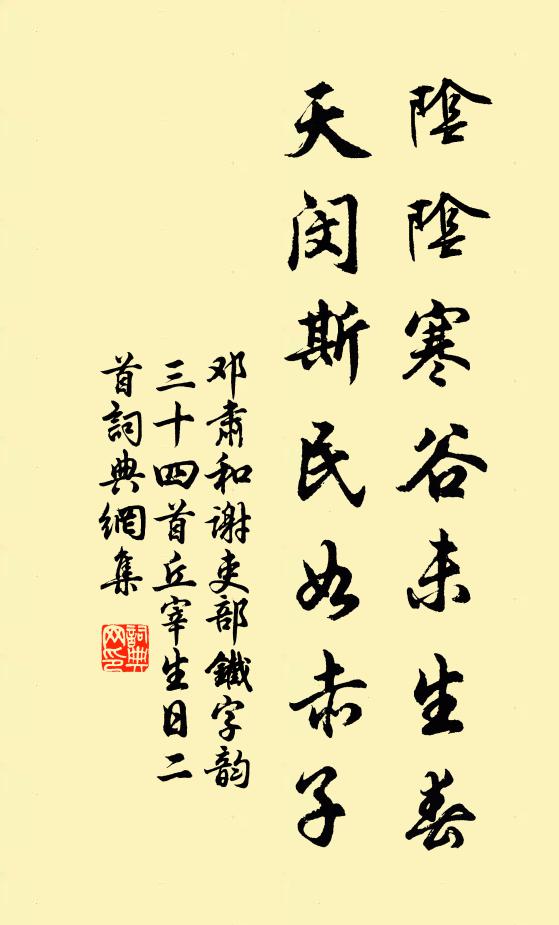 陰陰寒谷未生春
天閔斯民如赤子
邓肃和谢吏部鐵字韵
三十四首丘宰生日二
首詞典網集
詞典
网印